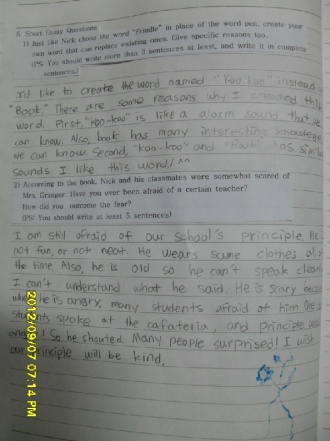 5. Short Essay Questions
1) Just like Nick chose the word "Frindle" in place of the word pen, create your
own word that can replace existing ones. Give specific reasons too.
(PS: You should write more than 3 sentences at least, and write it in complete
sentences.)
I'd like to create the word named "Koo koo" instead
"Book." There are some reasons why I created this
word. First, "koo-koo" is like a alarm sound that we
can know. Also, book has many interesting knowledge
we can know. Second, "koo-koo" and "Book" as similar
sounds I like this word! ^^
2) According to the book, Nick and his classmates were somewhat scared of
Mrs. Granger. Have you ever been afraid of a certain teacher?
How did you outcome the fear?
(PS: You should write at least 5 sentences)
I am still afraid of our school's principle. He is
not fun, or not neat. He wears same clothes all
the time Also, he is old so he can't speak clear
I can't understand what he said. He is scary because
when he is angry, many students afraid of him. One
students spoke at the cafeteria, and principle was
So he shouted. Many people surprised! I wish
our principle will be kind.
2012/09/07 07:14 PM